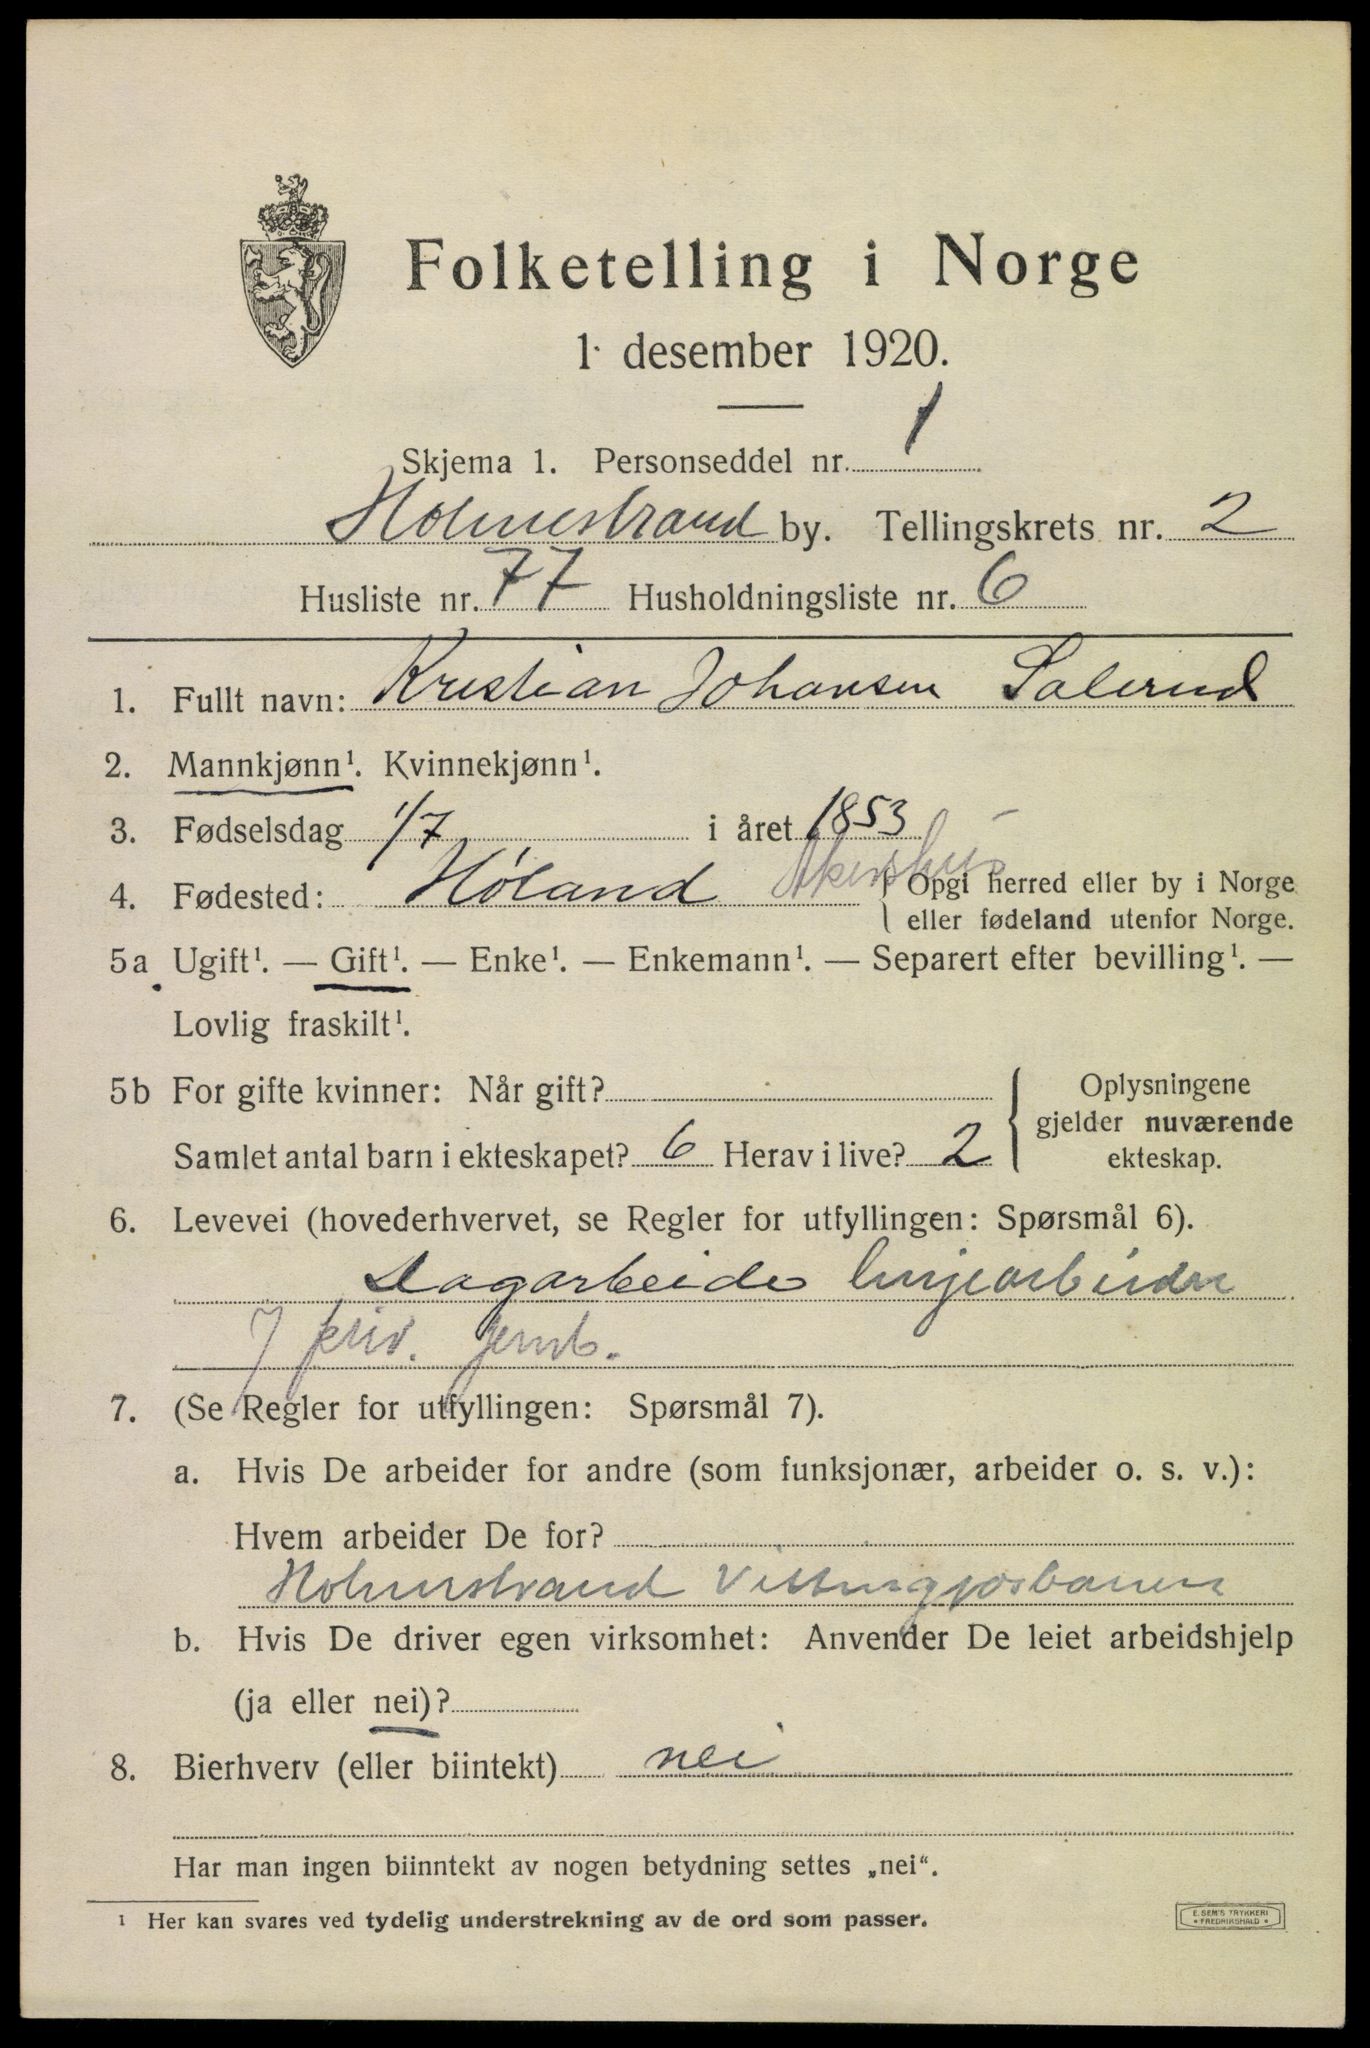 Folketelling i Norge
1. desember 1920.
Skjema 1. Personseddel nr. 1
Holmestrand by. Tellingskrets nr. 2
Husliste nr. 77 Husholdningsliste nr. 6
1. Fullt navn: Kristian Johansen Salerud
2. Mannkjønn¹. Kvinnekjønn¹.
3. Fødselsdag 1/7 i året 1853
4. Fødested: Høland Akershus { Opgi herred eller by i Norge
eller fødeland utenfor Norge.
5a Ugift¹. — Gift¹. — Enke¹. — Enkemann¹. — Separert efter bevilling¹. —
Lovlig fraskilt¹.
5b For gifte kvinner: Når gift?
Samlet antal barn i ekteskapet? 6 Herav i live? 2
Oplysningene
gjelder nuværende
ekteskap.
6. Levevei (hovederhvervet, se Regler for utfyllingen: Spørsmål 6).
Dagarbeide linjearbeider
priv. jernb.
7. (Se Regler for utfyllingen: Spørsmål 7).
a. Hvis De arbeider for andre (som funksjonær, arbeider o. s. v.):
Hvem arbeider De for?
Holmestrand Vittingfosbanen
b. Hvis De driver egen virksomhet: Anvender De leiet arbeidshjelp
(ja eller nei)?
8. Bierhverv (eller biintekt) nei
Har man ingen biinntekt av nogen betydning settes „nei“.
¹ Her kan svares ved tydelig understrekning av de ord som passer.
E. SEM'S TRYKKERI
• FREDRIKSHALD •